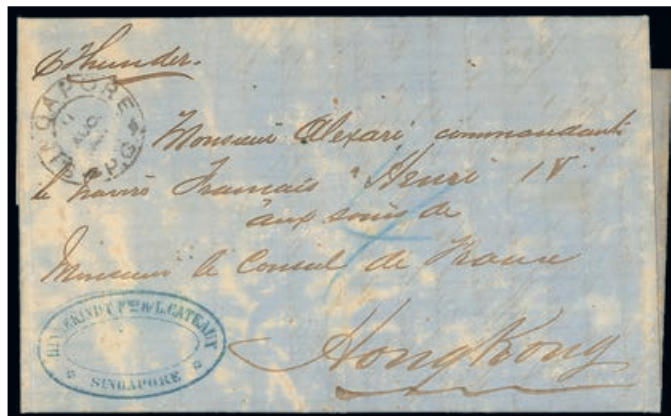 p Thunder.
SINGAPORE
AUG
Monsieur Alexari commandant
le navire Francais "Henri IV"
aux soins de
Monsieur le Consul de France
HongKong
RINNEKINDT FRES & L. CATEAUX
SINGAPORE